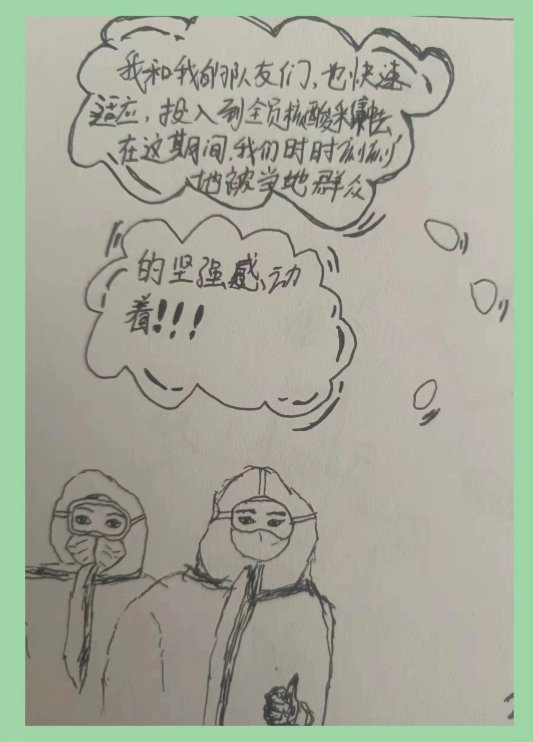 我和我的队友们，也快速
适应，投入到全员核酸采集去
在这期间，我们时时刻刻
地被当地群众
的坚强感动
着!!!